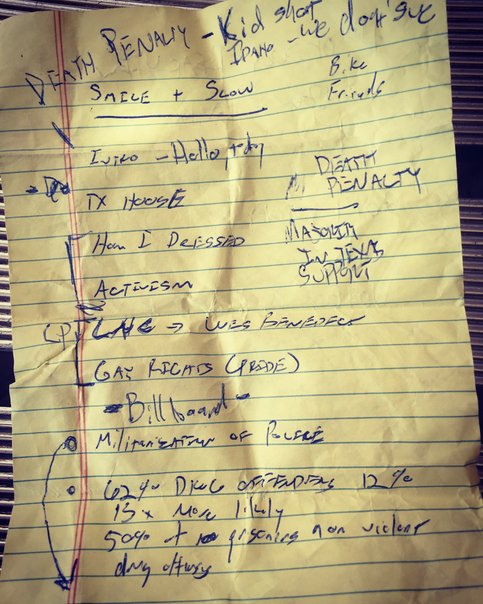 DEATH PENALTY - Kid shot
IDAHO - we don't sue
SMILE + SLOW
Bike
Friends
INTRO - Hello,
TX HOUSE
DEATH
PENALTY
How I DRESSED
MAJORITY
IN TEXAS
SUPPORT
ACTIVISM
LP LNC → WES BENEDICT
GAY RIGHTS (PRIDE)
- Billboard -
MILITARIZATION OF POLICE
62% DRUG OFFENDERS 12%
13x MORE likely
50% of prisoners non violent
drug